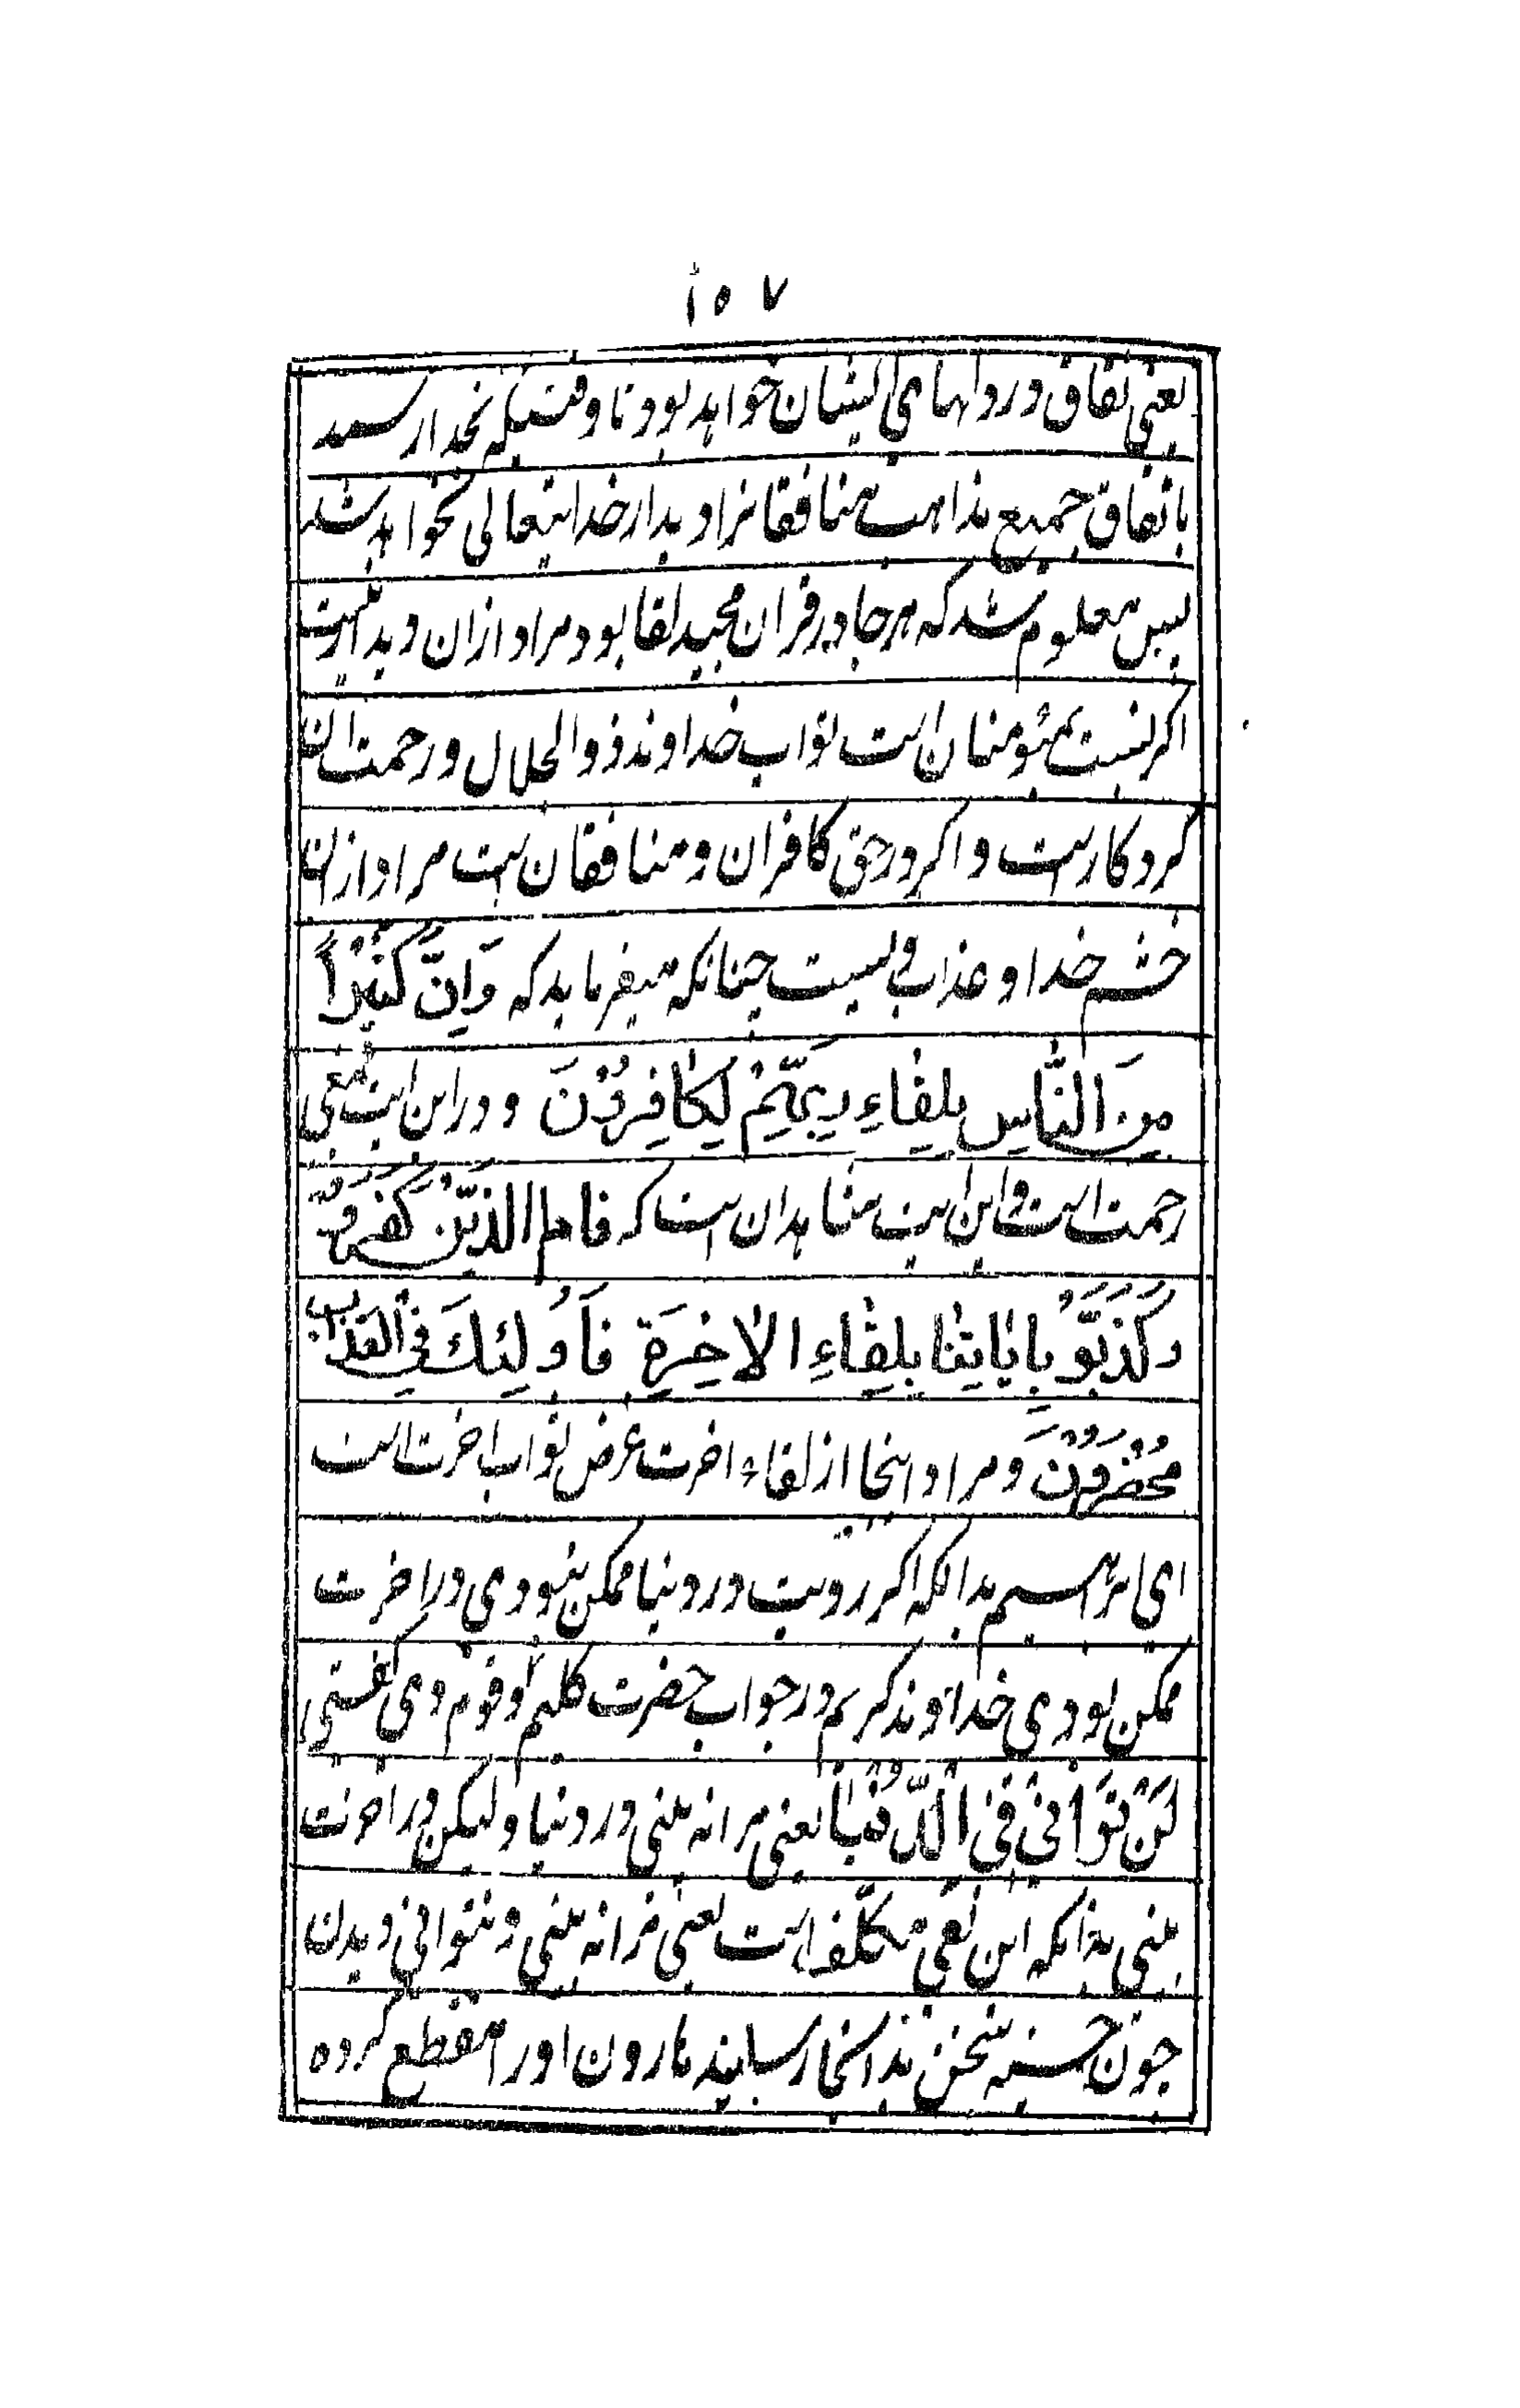 ١٥٧
یعنی نفاق در دلهای ایشان خواهد بود تا وقتیکه بخدا رسند
باتفاق جمیع مذاهب منافقانرا دیدار خدایتعالی نخواهد شد
پس معلوم شد که هرجا در قران مجید لقا بود مراد ازان دیدارنیست
اکر نسبت بمئومنان است ثواب خداوند ذوالجلال و رحمت ان
کردکارست و اکر در حق کافران و منافقان است مراد ازان
خشم خدا و عذاب ویست چنانکه میفرماید که وَاِنَّ کَثِیْراً
مِنَ النَّاسِ بِلِقٰاءِ رَبِّهِمْ لَکٰافِرُوْنَ و در این ایت بمعنی
رحمت است و این ایت شاهدان است که فاما الذَّیْنَ کَفَرُوْ
وَکَذَبَّوُ بِاٰیٰاتِنٰا بِلِقٰاءِ الاٰخِرَةِ فَاُولٰئِكَ فِی الْعَذٰابِ
مُحْضَرُوْنَ و مراد اینجا از لقاء اخرت عرض ثواب اخرت است
ای ابراهیم بدانکه اکر رویت در دنیا ممکن نبودی در اخرت
ممکن بودی خداوند کریم در جواب حضرت کلیم او قوم وی کفتی
لَنْ تَرٰانی فِی الدُّنْیٰا یعنی مرا نه بینی در دنیا ولیکن در اخرت
بینی بدانکه این نفی مکلّف است یعنی مرا نه بینی و نتوانی دیدن
چون حسنیه سخن بدانجا رسانید هارون اورا منقطع کرده